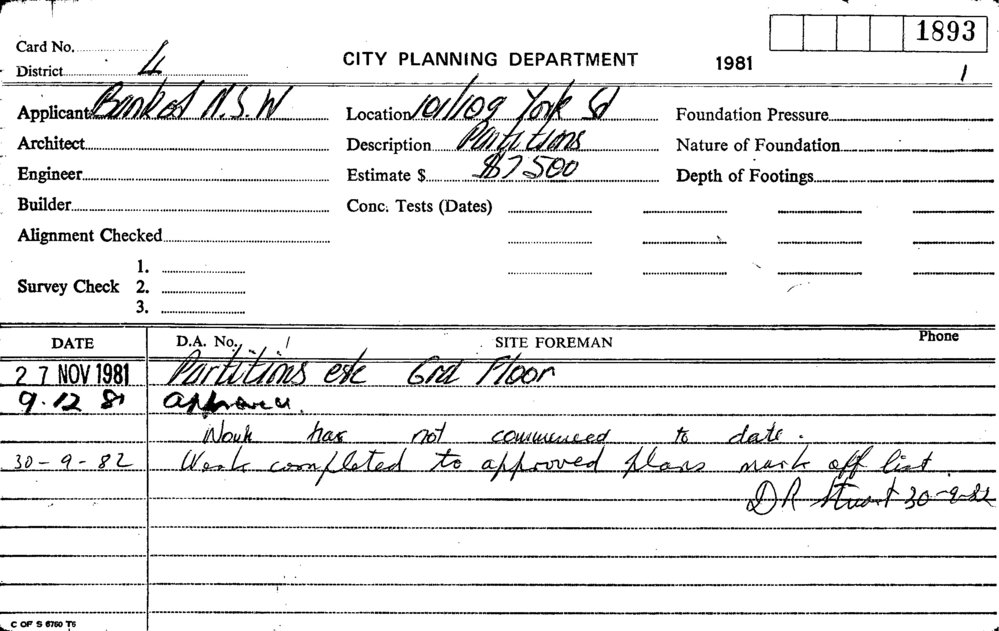 1893
Card No.
CITY PLANNING DEPARTMENT 1981
District 4 1
Applicant Bank of N.S.W Location 101/109 York St Foundation Pressure
Architect Description Partitions Nature of Foundation
Engineer Estimate $ $7500 Depth of Footings
Builder Conc. Tests (Dates)
Alignment Checked
1.
Survey Check 2.
3.
DATE D.A. No. / SITE FOREMAN Phone
27 NOV 1981 Partitions etc Grd Floor
9.12 81 approved.
Work has not commenced to date.
30-9-82 Work completed to approved plans mark off list.
D R Stuart 30-9-82
C OF S 6760 T5